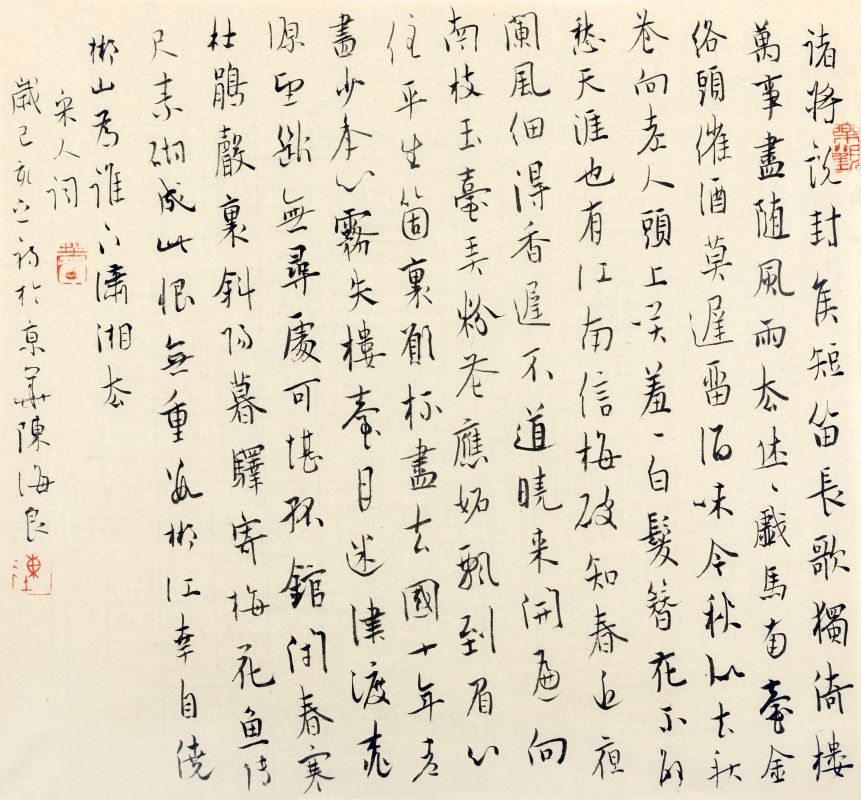 諸將說封侯短笛長歌獨倚樓
萬事盡隨風雨去休々戲馬南臺金
絡頭催酒莫遲留酒味今秋似去秋
花向老人頭上笑羞々白髮簪花不解
愁天涯也有江南信梅破知春近夜
闌風細得香遲不道曉來開遍向
南枝玉臺弄粉花應妬飄到眉心
住平生箇裏願杯盡去國十年老
盡少年心霧失樓臺月迷津渡桃
源望斷無尋處可堪孤館閉春寒
杜鵑聲裏斜陽暮驛寄梅花魚傳
尺素砌成此恨無重數郴江幸自繞
郴山為誰下瀟湘去
宋人詞
歲己亥之初於京華陳海良